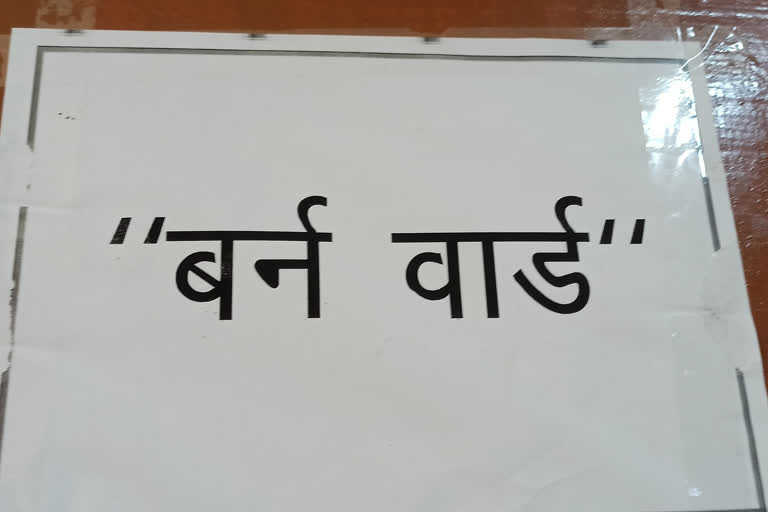 "बर्न वार्ड"